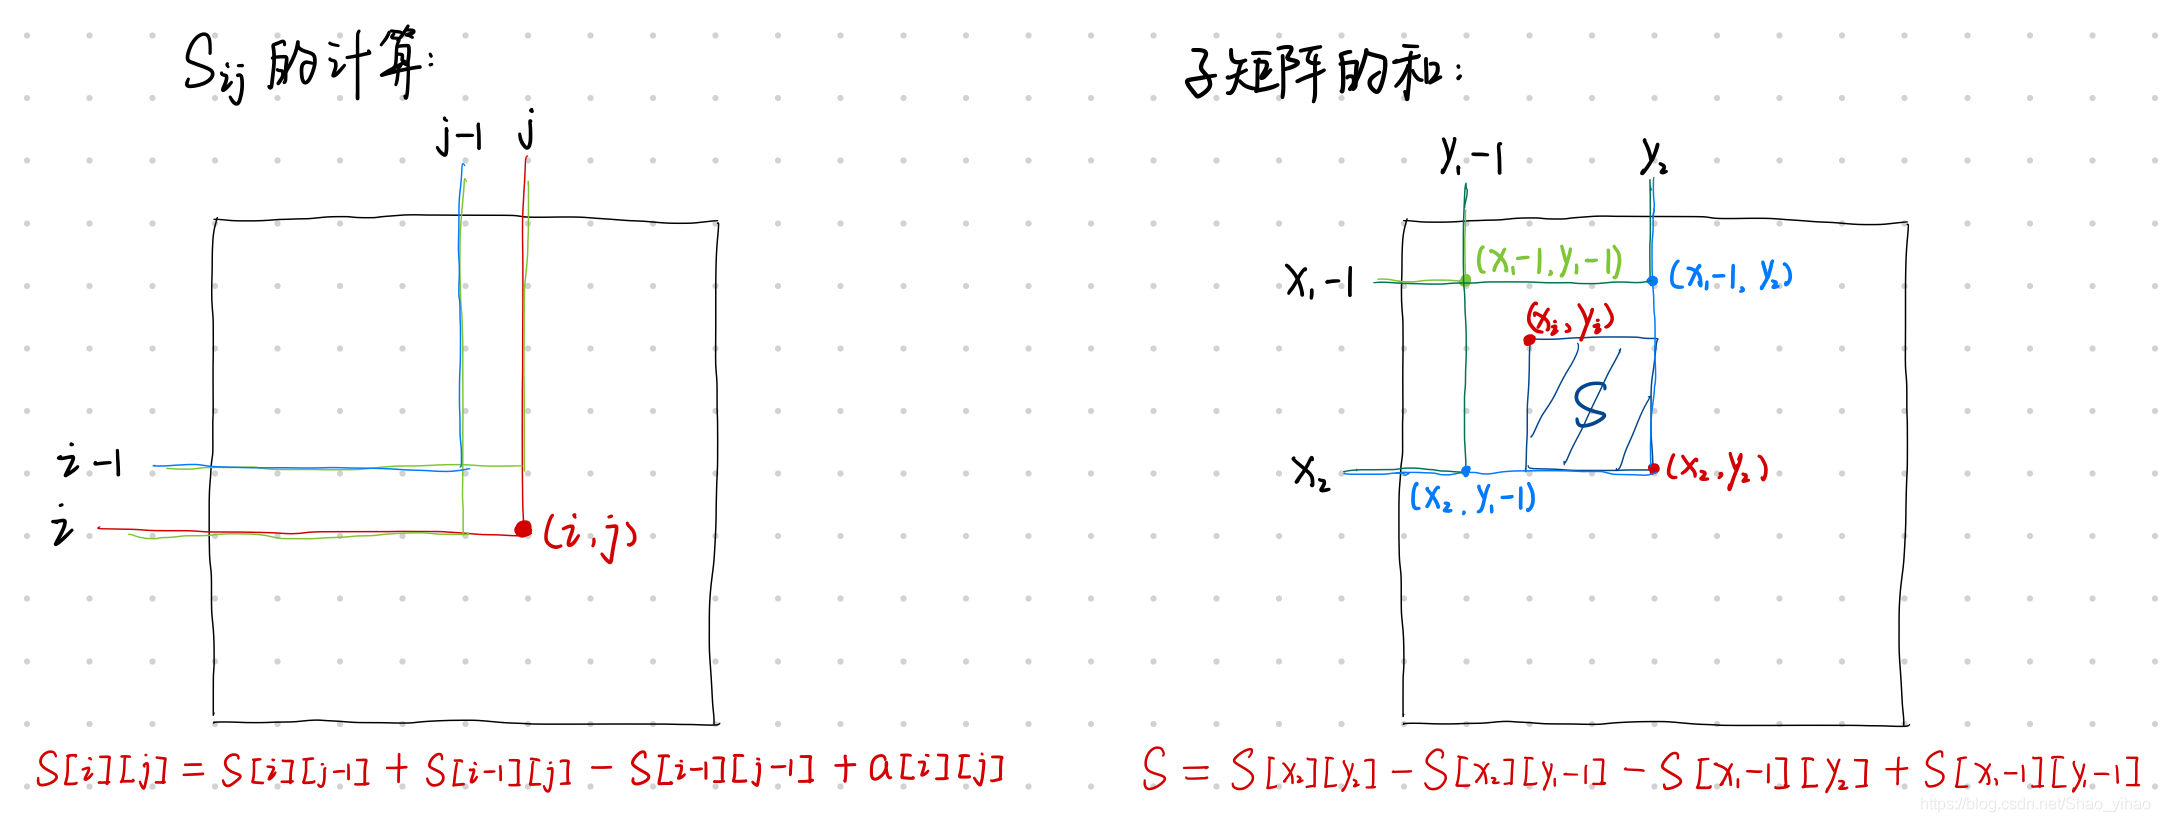 Sij 的计算:
j-1 j
i-1
i
(i,j)
S[i][j] = S[i][j-1] + S[i-1][j] - S[i-1][j-1] + a[i][j]
子矩阵的和:
y₁-1 y₂
(x₁-1, y₁-1)
x₁-1
(x₁-1, y₂)
(xᵢ, yᵢ)
S
x₂
(x₂, y₂)
(x₂, y₁-1)
S = S[x₂][y₂] - S[x₂][y₁-1] - S[x₁-1][y₂] + S[x₁-1][y₁-1]
https://blog.csdn.net/Shao_yihao